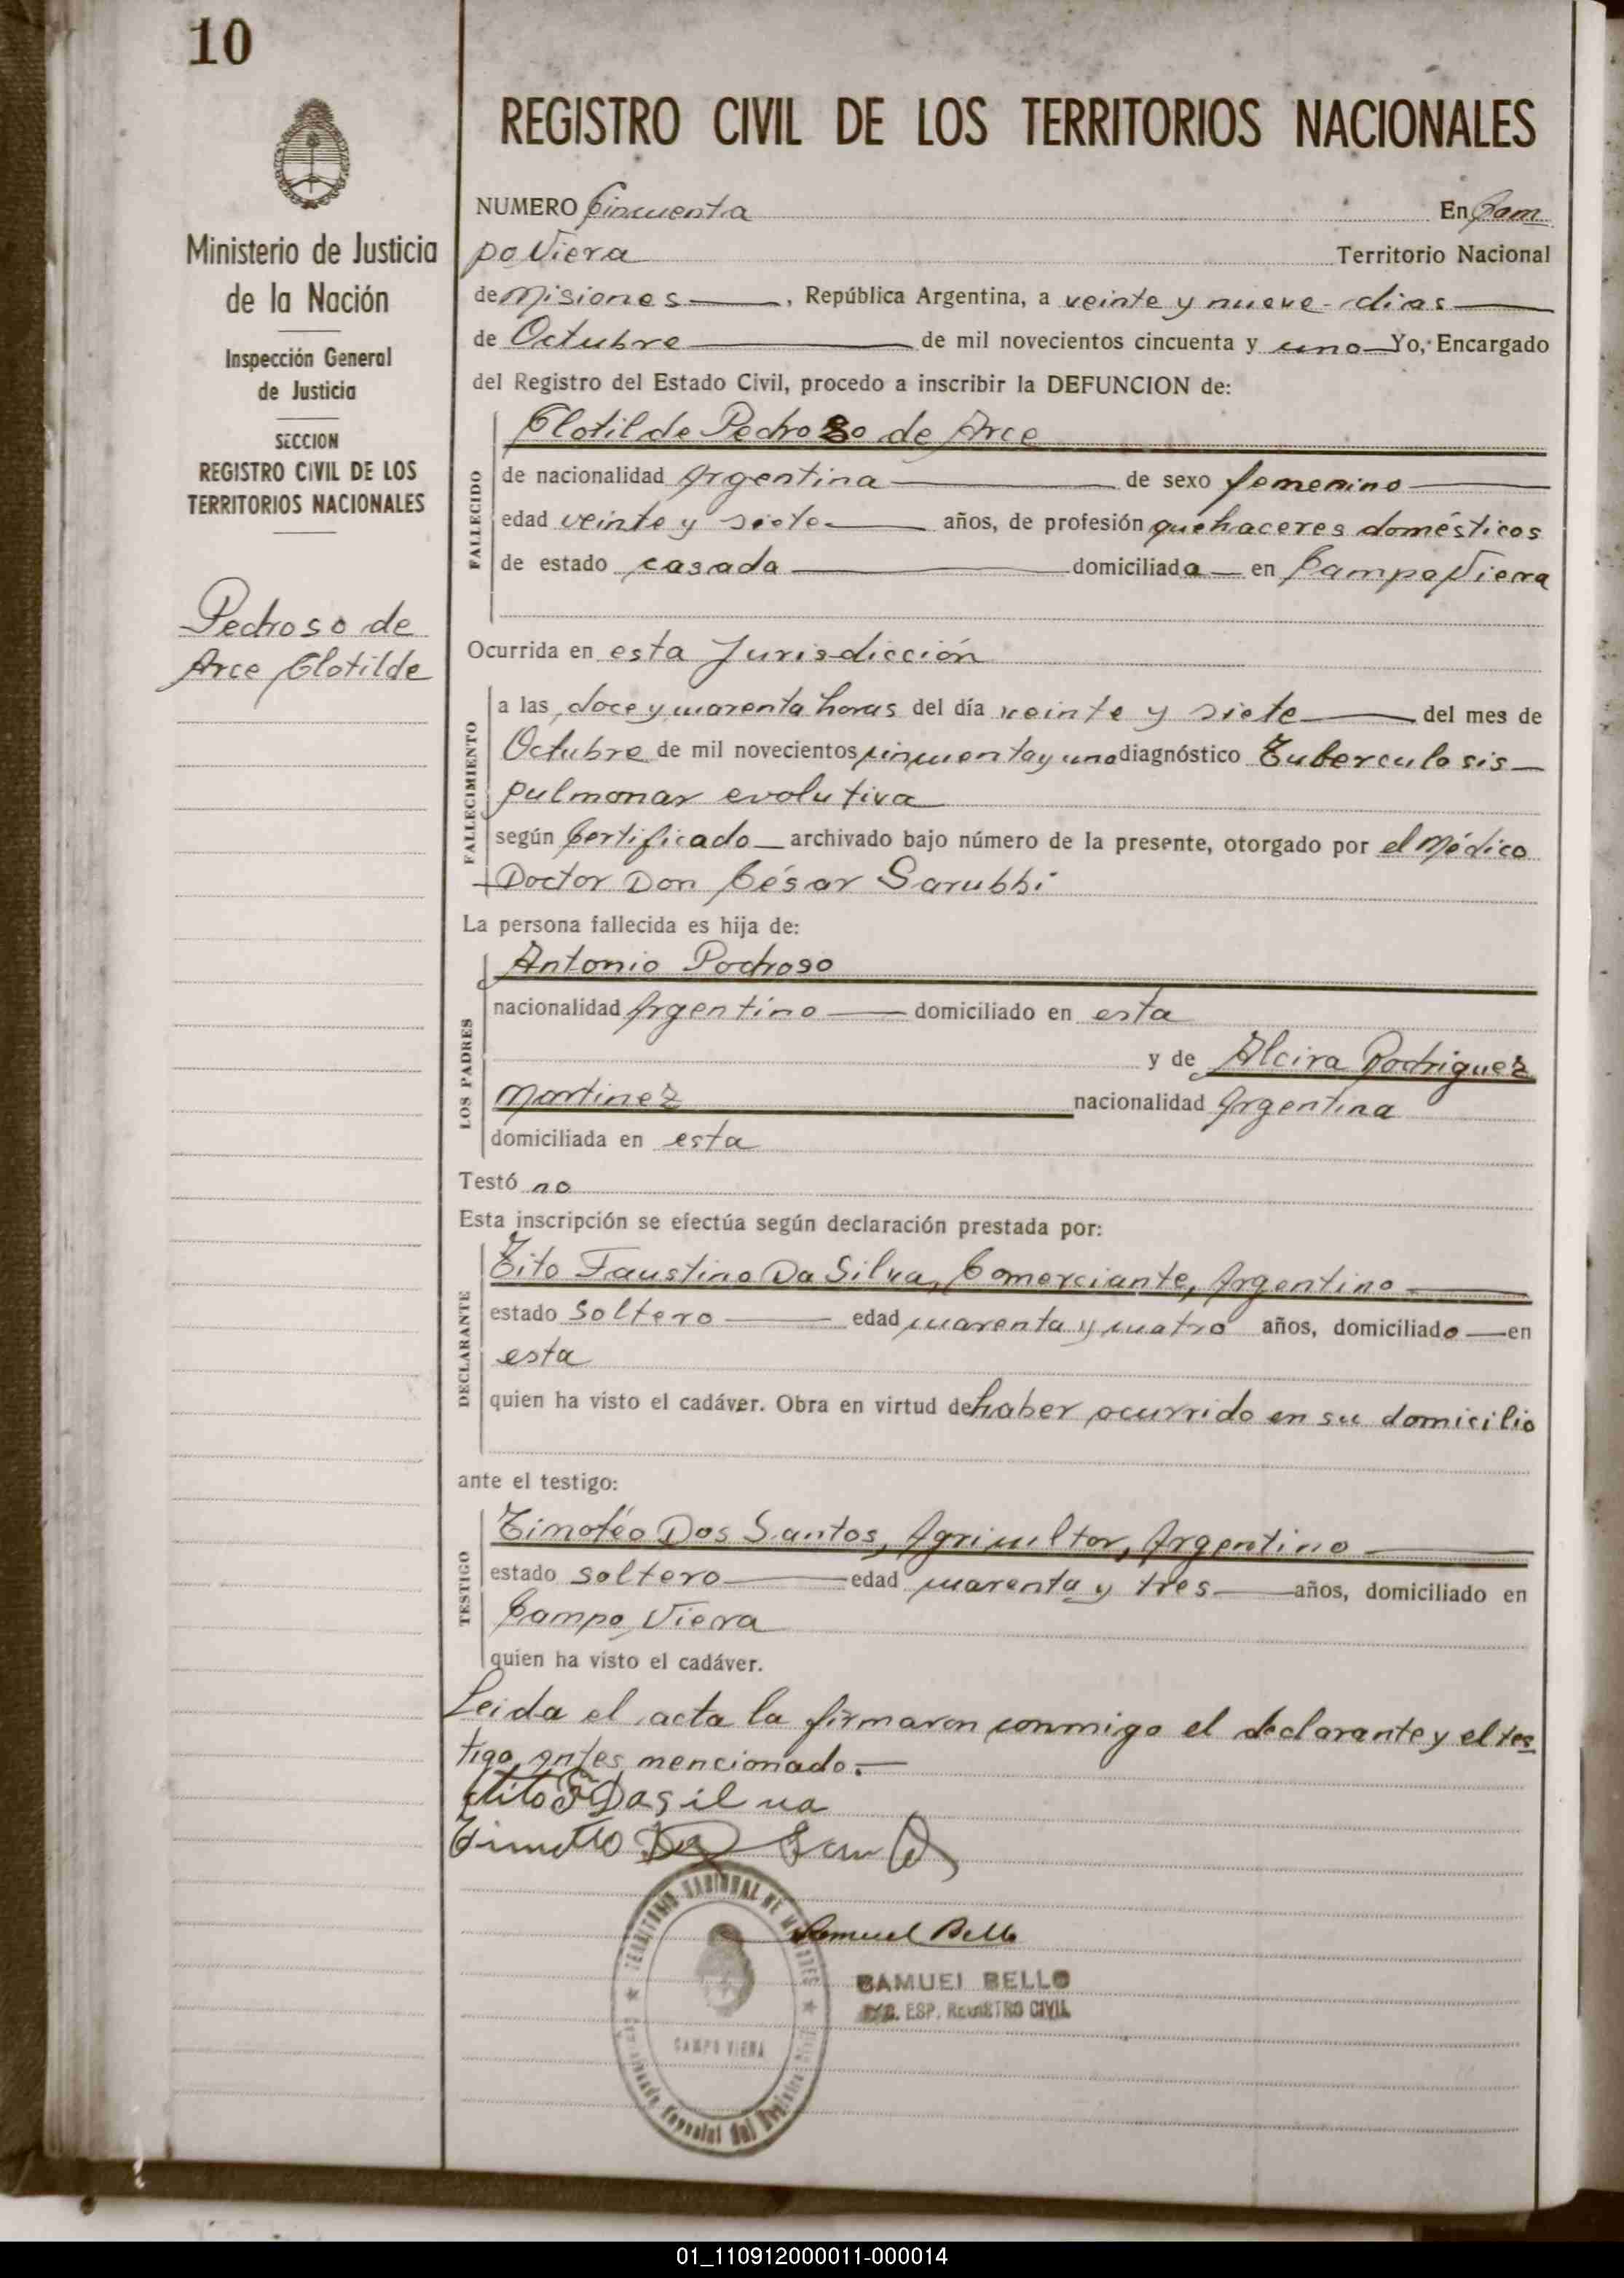 10
REGISTRO CIVIL DE LOS TERRITORIOS NACIONALES
Ministerio de Justicia
de la Nación
Inspección General
de Justicia
SECCION
REGISTRO CIVIL DE LOS
TERRITORIOS NACIONALES
Pedroso de
Arce Clotilde
NUMERO Cincuenta En Cam
po Viera Territorio Nacional
de Misiones, República Argentina, a veinte y nueve - dias
de Octubre de mil novecientos cincuenta y uno Yo, Encargado
del Registro del Estado Civil, procedo a inscribir la DEFUNCION de:
FALLECIDO
Clotilde Pedroso de Arce
de nacionalidad Argentina de sexo femenino
edad veinte y siete años, de profesión quehaceres domésticos
de estado casada domiciliada en Campo Viera
Ocurrida en esta Jurisdicción
FALLECIMIENTO
a las doce y cuarenta horas del día veinte y siete del mes de
Octubre de mil novecientos cincuenta y uno diagnóstico Tuberculosis
pulmonar evolutiva
según Certificado archivado bajo número de la presente, otorgado por el Médico
Doctor Don César Sarubbi
La persona fallecida es hija de:
LOS PADRES
Antonio Pedroso
nacionalidad Argentino domiciliado en esta
y de Alcira Rodriguez
Martinez nacionalidad Argentina
domiciliada en esta
Testó no
Esta inscripción se efectúa según declaración prestada por:
DECLARANTE
Tito Faustino Da Silva, Comerciante, Argentino
estado Soltero edad cuarenta y cuatro años, domiciliado en
esta
quien ha visto el cadáver. Obra en virtud de haber ocurrido en su domicilio
ante el testigo:
TESTIGO
Timotéo Dos Santos, Agricultor, Argentino
estado soltero edad cuarenta y tres años, domiciliado en
Campo Viera
quien ha visto el cadáver.
Leida el acta la firmaron conmigo el declarante y el tes
tigo antes mencionado.-
Tito F Dasilva
Timoteo Dos Santos
Samuel Bello
SAMUEL BELLO
ENC. ESP. REGISTRO CIVIL
TERRITORIO NACIONAL DE MISIONES
CAMPO VIERA
Encargado Especial del Registro Civil
01_110912000011-000014